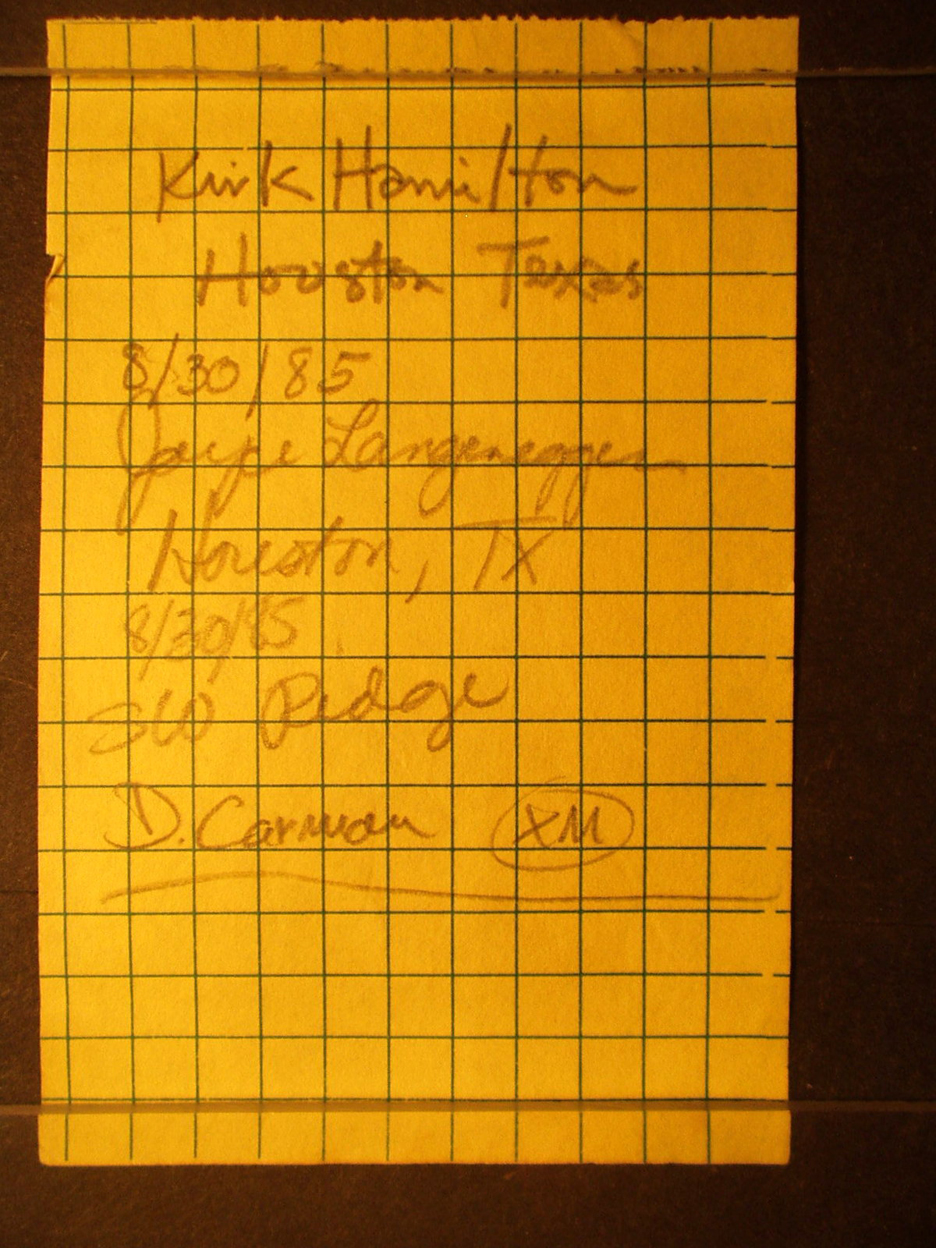 Kirk Hamilton
Houston Texas
8/30/85
Langenegger
Houston, TX
8/30/85
SW Ridge
D. Carman XM